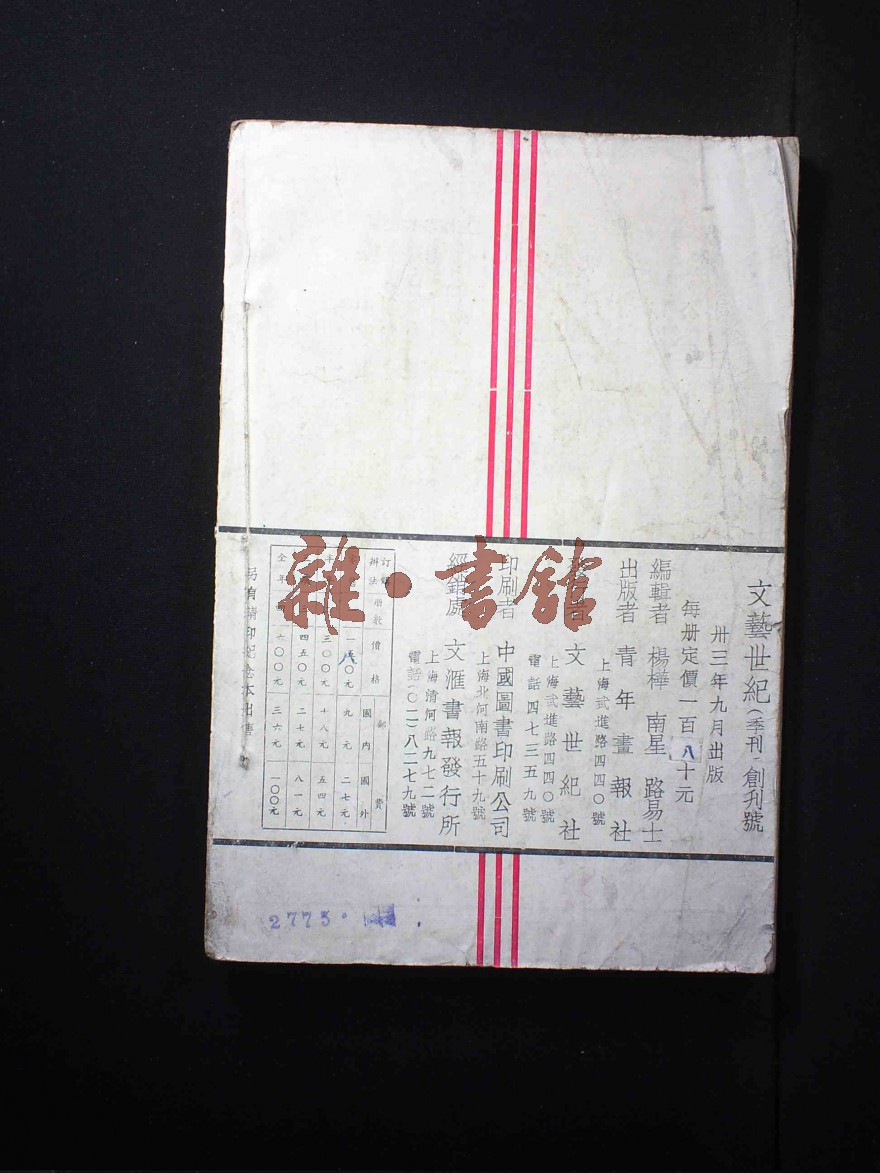 文藝世紀（季刊·創刊號
卅三年九月出版
每册定價一百八十元
編輯者 楊樺 南星 路易士
出版者 青年畫報社
上海武進路四四〇號
行者 文藝世紀社
上海武進路四四〇號
電話四七三五九號
印刷者 中國圖書印刷公司
上海北河南路五十九號
經銷處 文滙書報發行所
上海清河路九七二號
電話(〇二)八二七九號
訂 辦法 册數 價格 郵費 國內 國外
八〇元 九元 二七元
三〇〇元 十八元 五四元
四五〇元 二七元 八一元
全年 六〇〇元 三六元 一〇〇元
另有精印紀念本出售
2775
雜·書舘